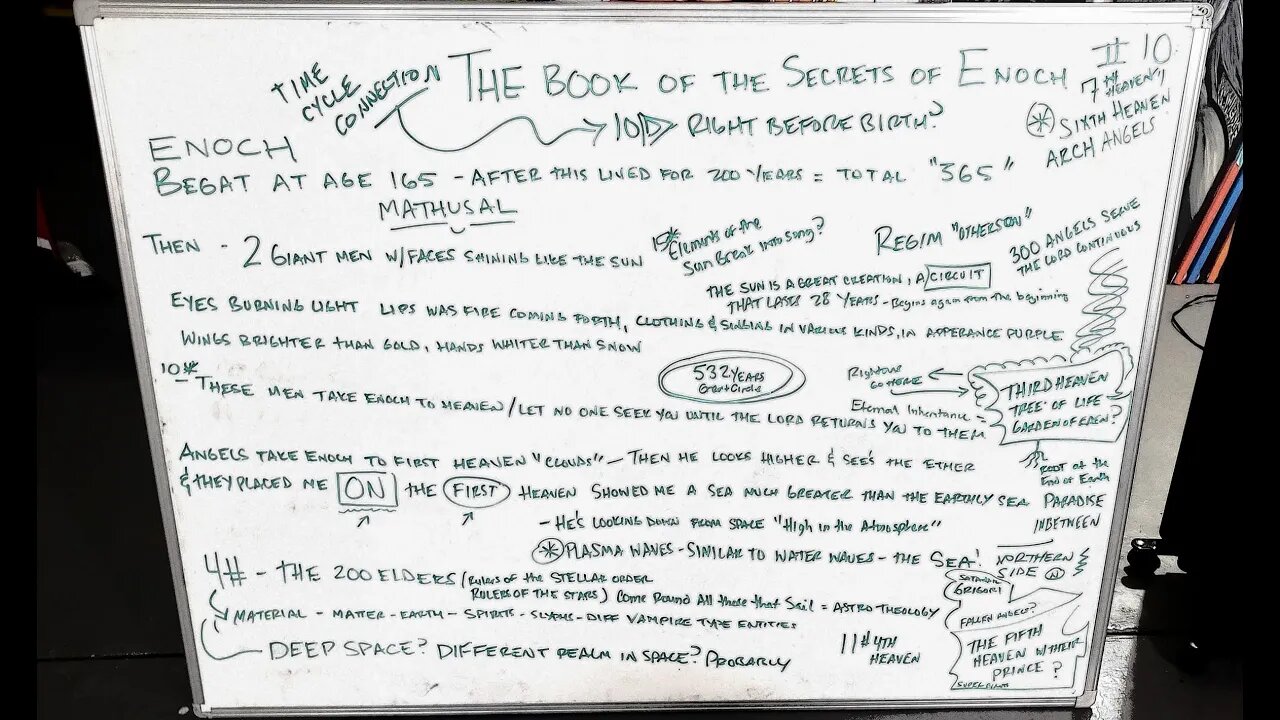 TIME
CYCLE
CONNECTION
THE BOOK OF THE SECRETS OF ENOCH
II 10
7TH HEAVEN
SIXTH HEAVEN
ARCH ANGELS
RIGHT BEFORE BIRTH?
ENOCH
BEGAT AT AGE 165 - AFTER THIS LIVED FOR 200 YEARS = TOTAL "365"
MATHUSAL
THEN - 2 GIANT MEN W/FACES SHINING LIKE THE SUN
15* Elements of the
Sun Break into Song?
REGIM "OTHERSON"
300 ANGELS SERVE
THE LORD CONTINUOUS
THE SUN IS A GREAT CREATION, A CIRCUIT
THAT LASTS 28 YEARS - Begins again from the beginning
EYES BURNING LIGHT LIPS WAS FIRE COMING FORTH, CLOTHING & SINGING IN VARIOUS KINDS, IN APPERANCE PURPLE
WINGS BRIGHTER THAN GOLD, HANDS WHITER THAN SNOW
532 YEARS
Great Circle
Righteous
Go HERE
Eternal Inheritance =
THIRD HEAVEN
TREE OF LIFE
GARDEN OF EDEN?
10*
- THESE MEN TAKE ENOCH TO HEAVEN / LET NO ONE SEEK YOU UNTIL THE LORD RETURNS YOU TO THEM
ROOT at the
End of Earth
ANGELS TAKE ENOCH TO FIRST HEAVEN "CLOUDS" - THEN HE LOOKS HIGHER & SEE'S THE ETHER
& THEY PLACED ME ON THE FIRST HEAVEN SHOWED ME A SEA MUCH GREATER THAN THE EARTHLY SEA
PARADISE
INBETWEEN
- HE'S LOOKING DOWN FROM SPACE "High in the Atmosphere"
* PLASMA WAVES - SIMILAR TO WATER WAVES - THE SEA!
NORTHERN
SIDE N
4# - THE 200 ELDERS (Rulers of the STELLAR ORDER
RULERS OF THE STARS) COME ROUND All these that Sail = ASTROTHEOLOGY
GRIGORI
FALLEN ANGELS?
MATERIAL - MATTER - EARTH - SPIRITS - DIFF VAMPIRE TYPE ENTITIES
DEEP SPACE? DIFFERENT REALM IN SPACE? PROBABLY
11# 4TH
HEAVEN
THE FIFTH
HEAVEN W/THEIR
PRINCE?